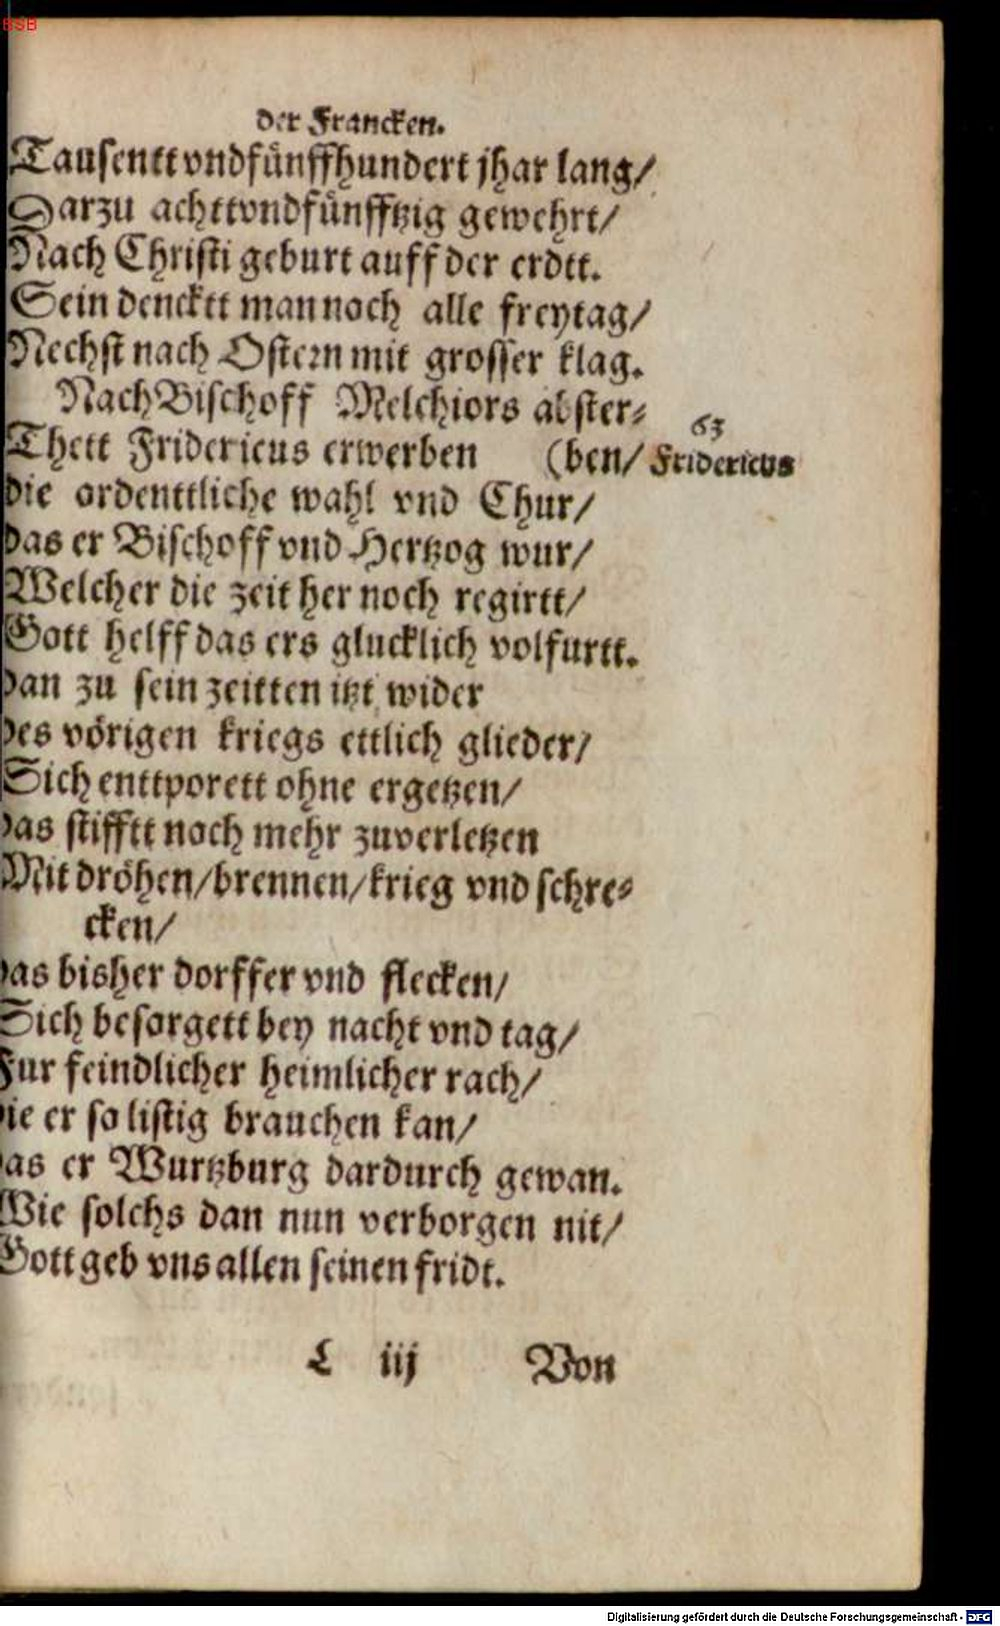 BSB
der Francken.
Tausentt vnd fünffhundert jhar lang/
Darzu achttvndfünfftzig gewehrt/
Nach Christi geburt auff der erdtt.
Sein dencktt man noch alle freytag/
Nechst nach Ostern mit grosser klag.
Nach Bischoff Melchiors abster⸗
63
Thett Fridericus erwerben (ben/ Fridericus
die ordenttliche wahl vnd Chur/
das er Bischoff vnd Hertzog wur/
Welcher die zeit her noch regirtt/
Gott helff das ers glucklich volfurtt.
dan zu sein zeitten itzt wider
des vörigen kriegs ettlich glieder/
Sich enttporett ohne ergetzen/
das stifftt noch mehr zuverletzen
Mit dröhen/brennen/krieg vnd schre⸗
cken/
das bisher dorffer vnd flecken/
Sich besorgett bey nacht vnd tag/
Fur feindlicher heimlicher rach/
die er so listig brauchen kan/
das er Wurtzburg dardurch gewan.
Wie solchs dan nun verborgen nit/
Gott geb vns allen seinen fridt.
L iij Von
Digitalisierung gefördert durch die Deutsche Forschungsgemeinschaft - DFG